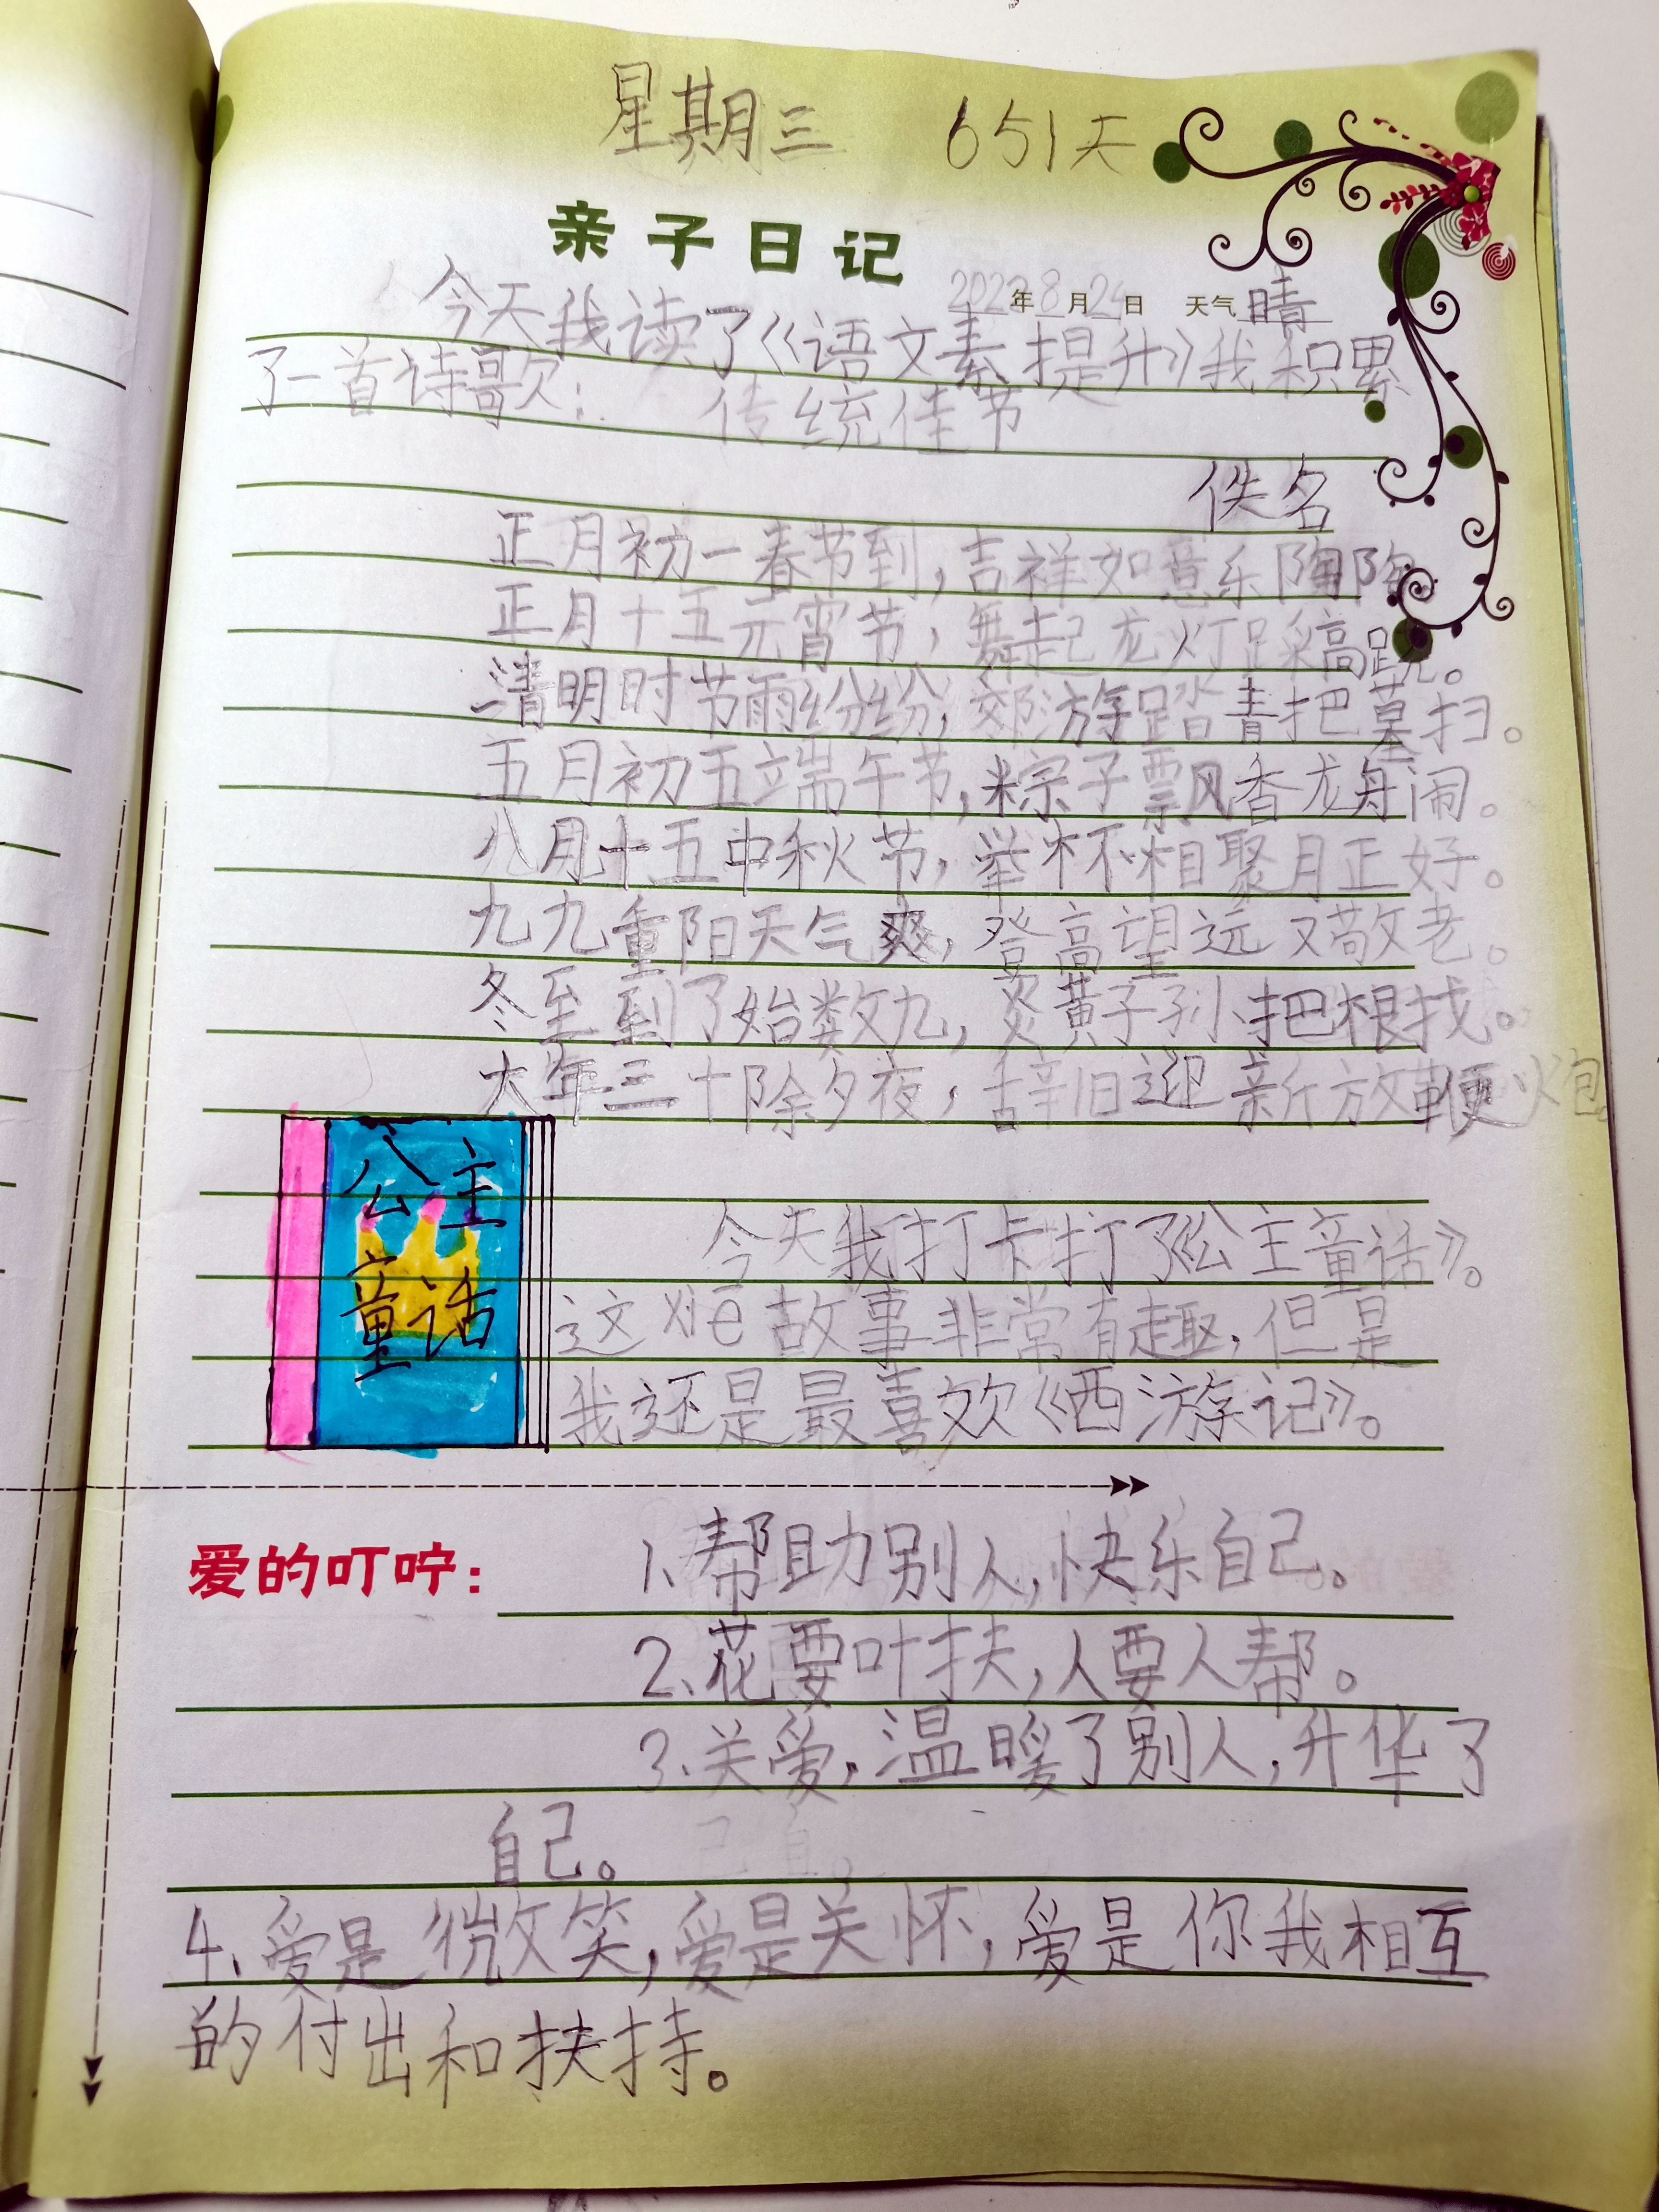 星期三 651天
亲子日记
2022年8月24日 天气晴
今天我读了《语文素提升》我积累
了一首诗歌：传统佳节
佚名
正月初一春节到，吉祥如意乐陶陶。
正月十五元宵节，舞起龙灯踩高跷。
清明时节雨纷纷，郊游踏青把墓扫。
五月初五端午节，粽子飘香龙舟闹。
八月十五中秋节，举杯相聚月正好。
九九重阳天气爽，登高望远又敬老。
冬至到了始数九，炎黄子孙把根找。
大年三十除夕夜，辞旧迎新放鞭炮。
公主
童话
今天我打卡打了《公主童话》。
这xiē故事非常有趣，但是
我还是最喜欢《西游记》。
爱的叮咛： 1、帮助别人，快乐自己。
2、花要叶扶，人要人帮。
3、关爱，温暖了别人，升华了
自己。
4、爱是微笑，爱是关怀，爱是你我相互
的付出和扶持。